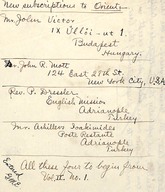 New subscriptions to Orient.
Mr. John Victor
IX Üllöi-ut 1.
Budapest
Hungary.
Mr. John R. Mott
124 East 28th St.
New York City, U.S.A
Rev. P. Bressler
English Mission
Adrianople
Turkey
Mr. Achilleus Ioakimides
Poste Restante
Adrianople
Turkey
All these four to begin from
Vol. II. No. 1.